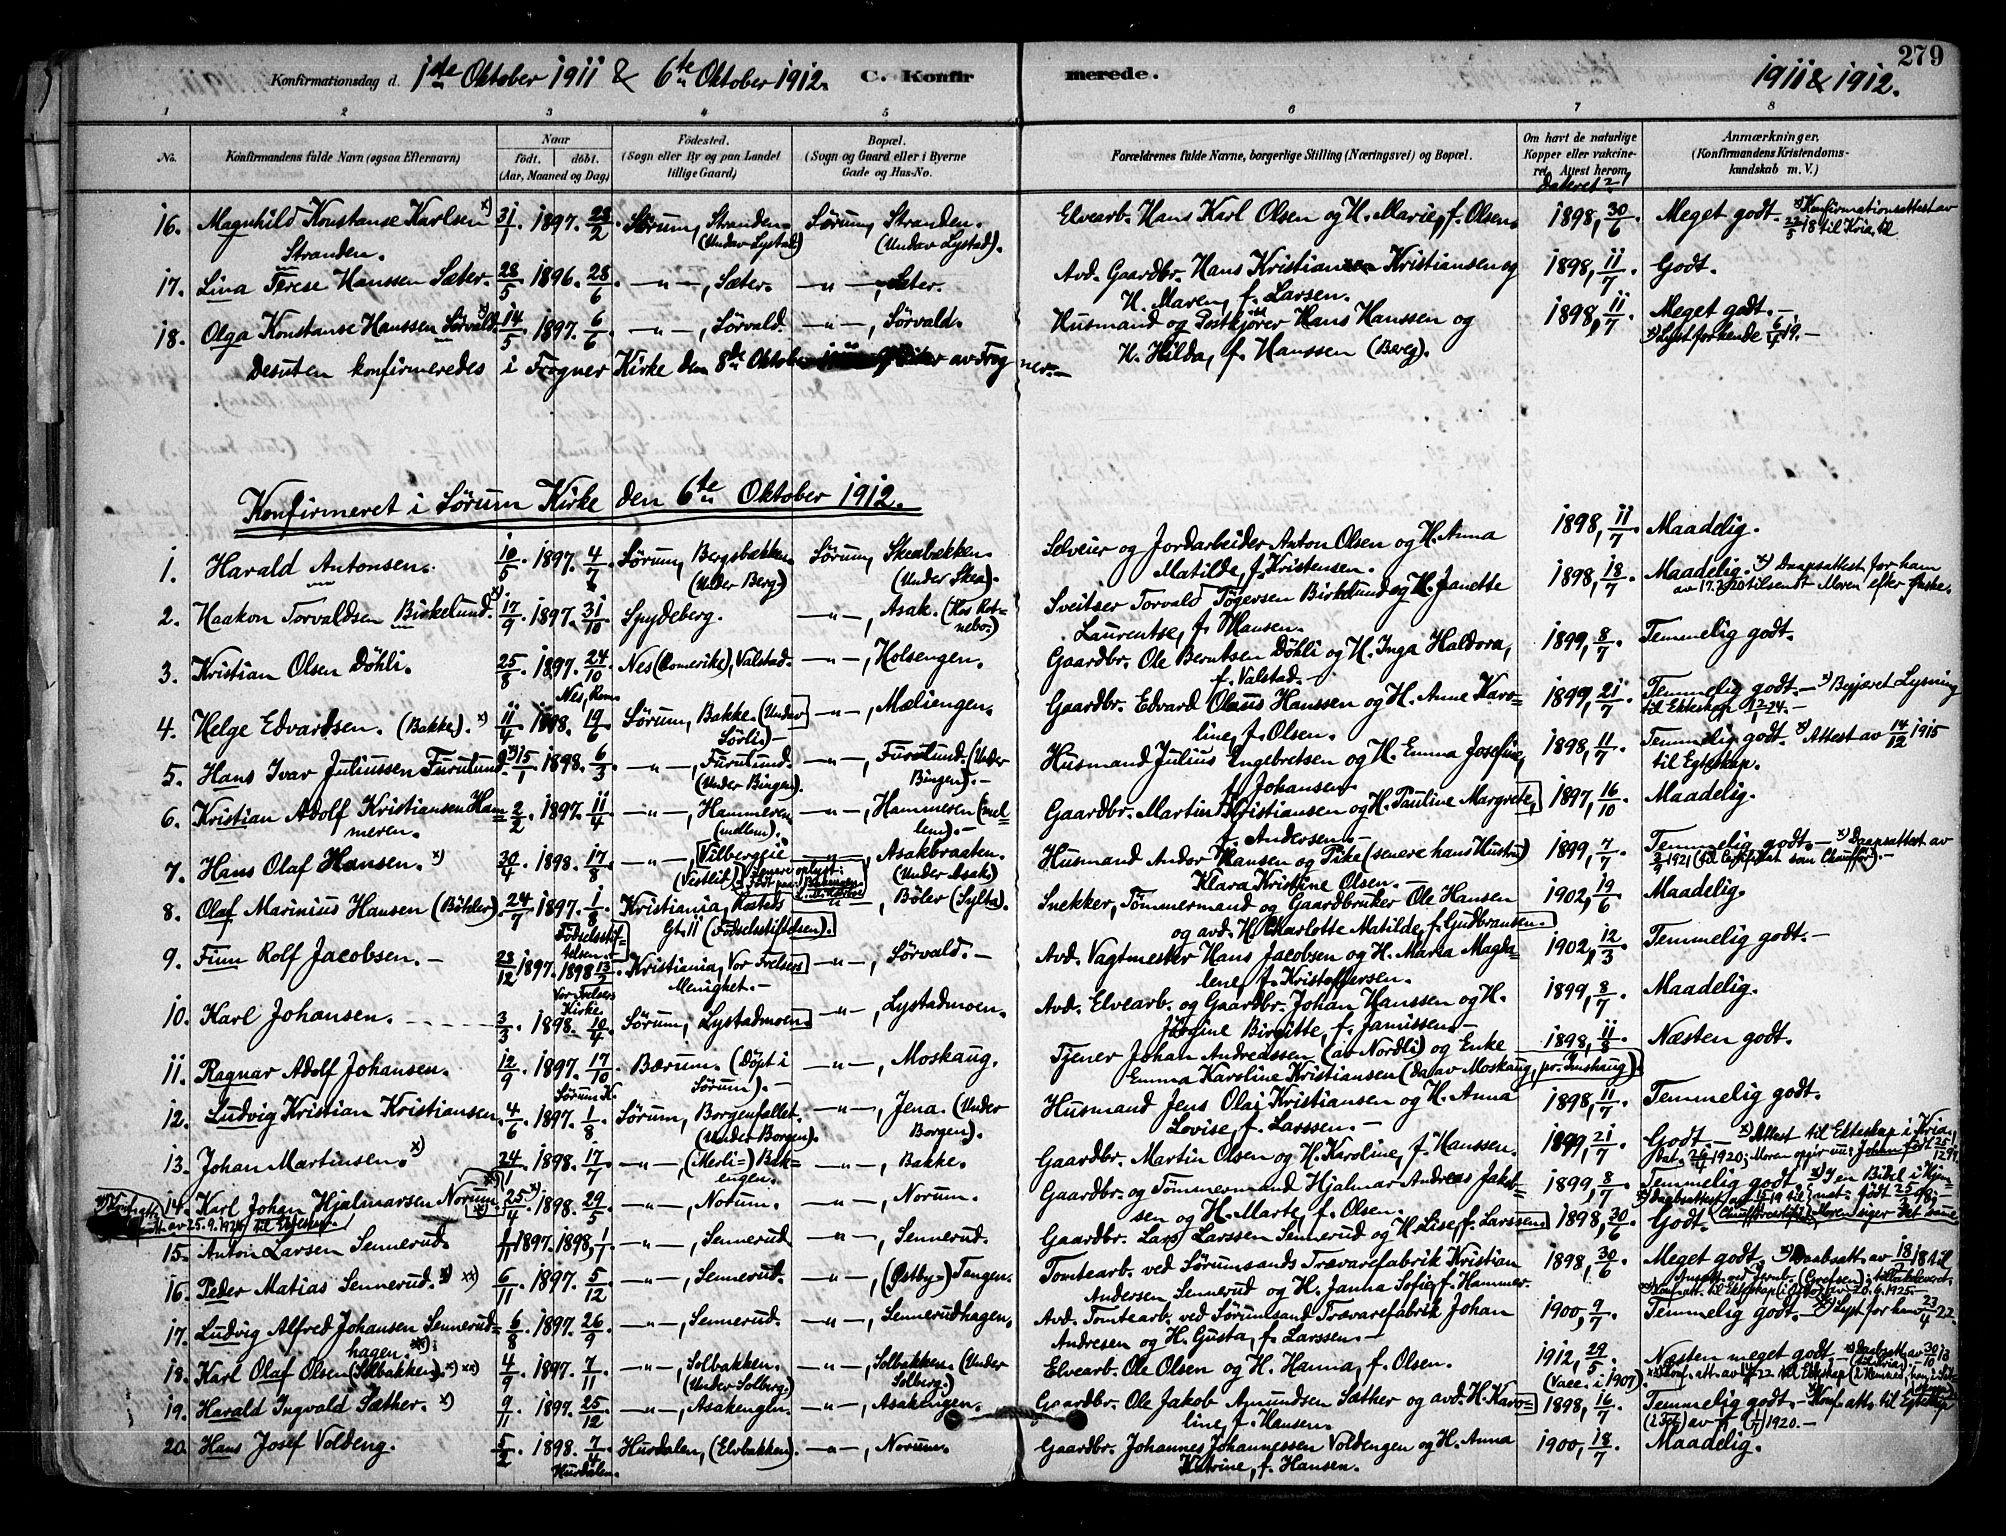 279
Konfirmationsdag d. 1ste Oktober 1911 & 6te Oktober 1912. C. Konfirmerede. 1911 & 1912.
1 2 3 4 5 6 7 8
No. Konfirmandens fulde Navn (ogsaa Efternavn) Naar født. døbt. (Aar, Maaned og Dag) Fødested. (Sogn eller By og paa Landet tillige Gaard) Bopæl. (Sogn og Gaard eller i Byerne Gade og Hus-No. Forældrenes fulde Navne, borgerlige Stilling (Næringsvei) og Bopæl. Om havt de naturlige Kopper eller vakcineret. Attest herom Dateret Anmærkninger. (Konfirmandens Kristendomskundskab m. V.)
16. Magnhild Konstanse Karlsen x) Stranden. 31/1 1897. 28/2 Sørum, Stranden. (Under Lystad) Sørum, Stranden. (Under Lystad). Elvearb. Hans Karl Olsen og H. Marie, f. Olsen. 1898, 30/6 Meget godt. x) Konfirmationsattest av 22/5 18 til Kria.
17. Lina Terese Hanssen Sæter. 28/5 1896. 28/6 —"—, Sæter. —"—, Sæter. Avd. Gaardbr. Hans Kristian Kristiansen og H. Maren, f. Larsen. 1898, 11/7. Godt.
18. Olga Konstanse Hanssen Sørvald. x) 14/5 1897. 6/6 —"—, Sørvald. —"—, Sørvald. Husmand og Postkjører Hans Hanssen og H. Hilda, f. Hanssen (Berg). 1898, 11/7. Meget godt. — x) Lyst for hende 6/4 19. —
Desuten konfirmeredes i Frogner Kirke den 8de Oktober av Frogner. —
Konfirmeret i Sørum Kirke den 6te Oktober 1912.
1. Harald Antonsen. 10/5. 1897. 4/7 Sørum, Bergsbækken (Under Berg.) Sørum, Skeabækken. (Under Skea). Selveier og Jordarbeider Anton Olsen og H. Anna Matilde, f. Kristensen. 1898, 11/7. Maadelig.
2. Haakon Torvaldsen Birkelund. x) 17/9 1897. 31/10 Spydeberg. —"—, Asak. (Hos Rotnebo.) Sveitser Torvald Tøgersen Birkelund og H. Janette Laurentse, f. Hansen. 1898, 18/7. Maadelig. x) Daapsattest for ham av 17.3.20 tilsendt Moren efter Ønske.
3. Kristian Olsen Døhli. 25/8 1897. 24/10 Nes, Rom. Nes (Romerike), Valstad. —"—, Holsengen. Gaardbr. Ole Berntsen Døhli og H. Inga Haldora, f. Valstad. — 1899, 8/7. Temmelig godt.
4. Helge Edvardsen. (Bakke). x) 11/4 1898. 19/6 Sørum, Bakke. (Under Sørli). — —"—, Mæliengen. Gaardbr. Edvard Olaus Hanssen og H. Anne Karoline, f. Olsen. 1899, 21/7. Temmelig godt. — x) Begjæret Lysning til Ekteskap 12/1 24. —
5. Hans Ivar Juliussen Furulund. x) 15/1 1898. 6/3 —"—, Furulund. (Under Bingen). —"—, Furulund. (Under Bingen). — Husmand Julius Engebretsen og H. Emma Josefine, f. Johansen. 1898, 11/7. Temmelig godt. x) Attest av 14/12 1915 til Egteskap.
6. Kristian Adolf Kristiansen Hammeren. 2/2. 1897. 11/4 —"—, Hammeren (mellem). —"—, Hammeren (mellem). — Gaardbr. Martin Kristiansen og H. Pauline Margrete, f. Andersen. — 1897, 16/10 Maadelig.
7. Hans Olaf Hansen. x) 30/4 1898. 17/8 —"—, Vilberggeie (Vestlie) —"—, Asakbraaten. (Under Asak) Husmand Andor Hansen og Pike (senere hans Hustru) Klara Kristine Olsen. — 1899, 7/7. Temmelig godt. — x) Daapsattest av 1921 (til Certifikat som Chauffør). —
8. Olaf Marinius Hansen (Böhler). 24/7 1897. 1/8 Fødselsstiftelsen. Kristiania, Gt. 11 (Fødselsstiftelsen). —"—, Böler (Sylta). Snekker, Tømmermand og Gaardbruker Ole Hansen og avd. H. Karlotte Matilde, f. Gudbransen. 1902, 19/6 Maadelig.
9. Finn Rolf Jacobsen. — 28/12 1897. 1898 13/2 Vor Frelsers Kirke. Kristiania, Vor Frelsers Menighet. — —"—, Sørvald. — Avd. Vagtmester Hans Jacobsen og H. Maria Magdalene, f. Kristoffersen. 1902, 12/3. Temmelig godt. —
10. Karl Johansen. 3/3. 1898. 10/4 Sørum, Lystadmoen. —"—, Lystadmoen. Avd. Elvearb. og Gaardbr. Johan Hanssen og H. Jørgine Birgitte, f. Jamissen. — 1899, 8/7. Maadelig.
11. Ragnar Adolf Johansen. 12/9. 1897. 17/10. Sørum K. Bærum. (Døpt i Sørum). — —"—, Moskaug. Tjener Johan Andreassen (av Nordli) og Enke Emma Karoline Kristiansen (da av Moskaug, pr. Imshaug). 1898, 11/8 Næsten godt.
12. Ludvig Kristian Kristiansen. 4/6 1897. 1/8 Sørum, Borgenfallet. (Under Borgen). —"—, Jena. (Under Borgen). Husmand Jens Olai Kristiansen og H. Anna Lovise, f. Larssen. — 1898, 11/7. Temmelig godt.
13. Johan Martinsen. x) 24/1 1898. 17/7 —"—, (Merli=) Bakengen. —"—, Bakke. Gaardbr. Martin Olsen og H. Karoline, f. Hanssen. 1899, 21/7. Godt. — x) Attest til Ekteskap i Kria, dat. 1920; Moren opgir Johan født 25/12 97.
14. Karl Johan Hjalmarsen Norum. x) 25/4 1898. 29/5 —"—, Norum. —"—, Norum. Gaardbr. og Tømmermand Hjalmar Andreas Jakobsen og H. Marte, f. Olsen. 1899, 8/7. Temmelig godt. x) I en Bibel i Hjemmet født 25/2 98; Moren siger det samme. Daabsattest av 19 til Chaufførcertifikat
av 25.9.1925 til Ekteskap.
15. Anton Larsen Sennerud. 1897. 1898. 1/1. —"—, Sennerud —"—, Sennerud. Gaardbr. Lars Larssen Sennerud og H. Lise, f. Larssen 1898, 30/6 Godt.
16. Peder Matias Sennerud. x) xx) 6/11 1897. 5/12 —"—, Sennerud. —"—, (Østby=) Tangen. Tomtearb. ved Sørumsands Travarefabrik Kristian Andersen Sennerud og H. Janna Sofie, f. Hammer. 1898, 30/6 Meget godt. x) Daabsatt. av 18 til xx) Konf. att. til Ekteskap av 20.9.1925.
17. Ludvig Alfred Johansen Sennerudhagen. x) 6/8 1897. 26/9 —"—, Sennerud. —"—, Sennerudhagen. Avd. Tomtearb. ved Sørumsand Travarefabrik Johan Andresen og H. Gusta, f. Larssen. — 1900, 9/7. Temmelig godt. x) Lyst for ham 23/4 22.
18. Karl Olaf Olsen (Solbakken). x) xx) 4/9 1897. 7/11 —"—, Solbakken. (Under Solberg.) —"—, Solbakken. (Under Solberg.) Elvearb. Ole Olsen og H. Hanna, f. Olsen. 1912, 29/5. (Vacc. i 1907). Næsten meget godt. x) Daabsatt. av 30/10 18
19. Harald Ingvald Sæther. x) 9/11 1897. 25/12 —"—, Asakengen. —"—, Asakengen. Gaardbr. Ole Jakob Amundsen Sæther og avd. H. Karoline, f. Hansen. 1898, 16/7. Temmelig godt. x) Konf. att. til Egteskap av 1920. —
20. Hans Josef Voldeng. 5/2 1898. 7/4 Hurdalen. Hurdalen, (Elvbakken). —"—, Norum. Gaardbr. Johannes Johannessen Voldengen og H. Anna Katrine, f. Hansen. 1900, 18/7. Maadelig.